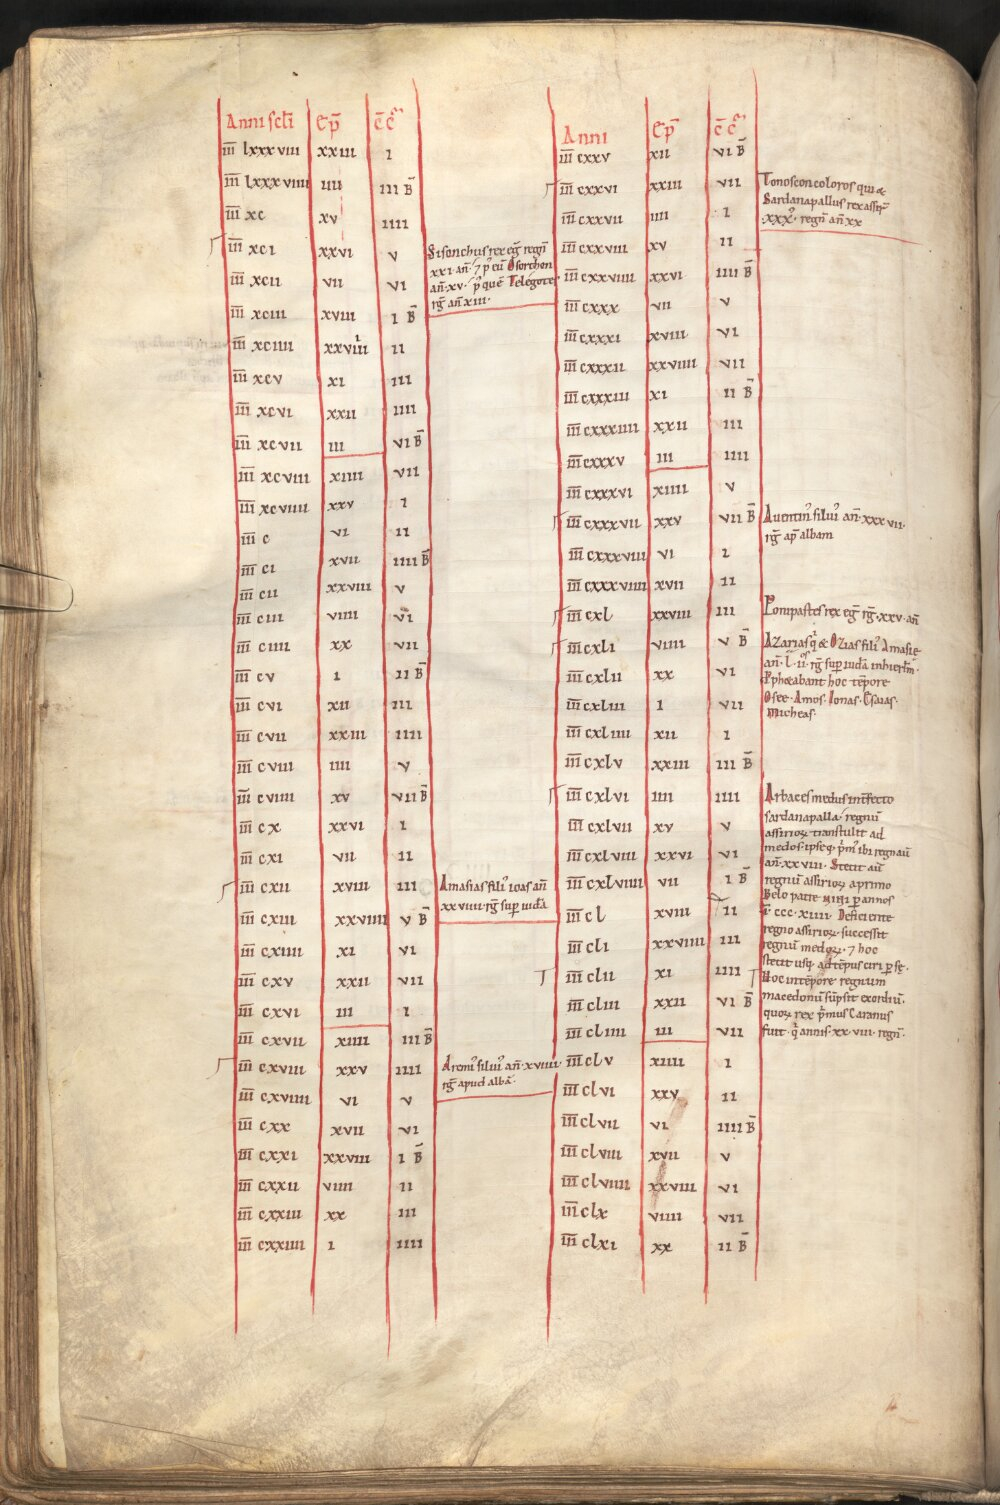 Anni scłi Ep̄ c̄ c̄
iii̅ lxxxviii xxiii i
iii̅ lxxxviiii iiii iii B̄
iii̅ xc xv iiii
iii̅ xci xxvi v
iii̅ xcii vii vi
iii̅ xciii xviii i B̄
iii̅ xciiii xxviiii ii
iii̅ xcv xi iii
iii̅ xcvi xxii iiii
iii̅ xcvii iii vi B̄
iii̅ xcviii xiiii vii
iii̅ xcviiii xxv i
iii̅ c vi ii
iii̅ ci xvii iiii B̄
iii̅ cii xxviii v
iii̅ ciii viiii vi
iii̅ ciiii xx vii
iii̅ cv i ii B̄
iii̅ cvi xii iii
iii̅ cvii xxiii iiii
iii̅ cviii iiii v
iii̅ cviiii xv vii B̄
iii̅ cx xxvi i
iii̅ cxi vii ii
iii̅ cxii xviii iii
iii̅ cxiii xxviiii v B̄
iii̅ cxiiii xi vi
iii̅ cxv xxii vii
iii̅ cxvi iii i
iii̅ cxvii xiiii iii B̄
iii̅ cxviii xxv iiii
iii̅ cxviiii vi v
iii̅ cxx xvii vi
iii̅ cxxi xxviii i B̄
iii̅ cxxii viiii ii
iii̅ cxxiii xx iii
iii̅ cxxiiii i iiii
Sisonchus rex eḡ regn̄
xxi· an̄· ⁊ p᷒ eū Osorchon
an̄·xv· p᷒ quē Telegotes
rḡ an̄ xiii·
Amasias filiꝰ ioas an̄
xxviiii· rḡ suꝑ iudā
Aremꝰ siluiꝰ an̄·xviiii·
rḡ apud albā·
Anni Ep̄ c̄ c̄
iii̅ cxxv xii vi B̄
iii̅ cxxvi xxiii vii
iii̅ cxxvii iiii i
iii̅ cxxviii xv ii
iii̅ cxxviiii xxvi iiii B̄
iii̅ cxxx vii v
iii̅ cxxxi xviii vi
iii̅ cxxxii xxviiii vii
iii̅ cxxxiii xi ii B̄
iii̅ cxxxiiii xxii iii
iii̅ cxxxv iii iiii
iii̅ cxxxvi xiiii v
iii̅ cxxxvii xxv vii B̄
iii̅ cxxxviii vi i
iii̅ cxxxviiii xvii ii
iii̅ cxl xxviii iii
iii̅ cxli viiii v B̄
iii̅ cxlii xx vi
iii̅ cxliii i vii
iii̅ cxliiii xii i
iii̅ cxlv xxiii iii B̄
iii̅ cxlvi iiii iiii
iii̅ cxlvii xv v
iii̅ cxlviii xxvi vi
iii̅ cxlviiii vii i B̄
iii̅ cl xviii ii
iii̅ cli xxviiii iii
iii̅ clii xi iiii
iii̅ cliii xxii vi B̄
iii̅ cliiii iii vii
iii̅ clv xiiii i
iii̅ clvi xxv ii
iii̅ clvii vi iiii B̄
iii̅ clviii xvii v
iii̅ clviiii xxviii vi
iii̅ clx viiii vii
iii̅ clxi xx ii B̄
Tonosconcoloros qui &
Sardanapallus rex
regn̄ an̄ xx
Auentinꝰ siluiꝰ an̄·xxxvii·
rḡ ap̄ albam
rex eḡ rḡ·xxv·an̄
Azarias & Ozias filiꝰ Amasie
an̄· l· ii· rḡ suꝑ iudā in hierlm̄·
Pphetabant hoc tēpore
Osee· Amos· Ionas· Esaias·
Micheas·
Arbaces medus int̄fecto
sardanapalla· regnū
assirioꝝ transtulit ad
medos· ipseq; p᷒mꝰ ibi regnauit
an̄· xxviii· Stetit aū
regnū assirioꝝ a primo
Belo patre nini ꝑ annos
i̅ ccc·xiiii· Deficiente
regno assirioꝝ· successit
regnū medoꝝ· ⁊ hoc
stetit usq; ad tēpus ciri ꝑsę·
Hoc in tēpore regnum
macedonū sūpsit exordiū·
quoꝝ rex p᷒mus Caranus
fuit· q᷒ annis xxviii· regn̄·